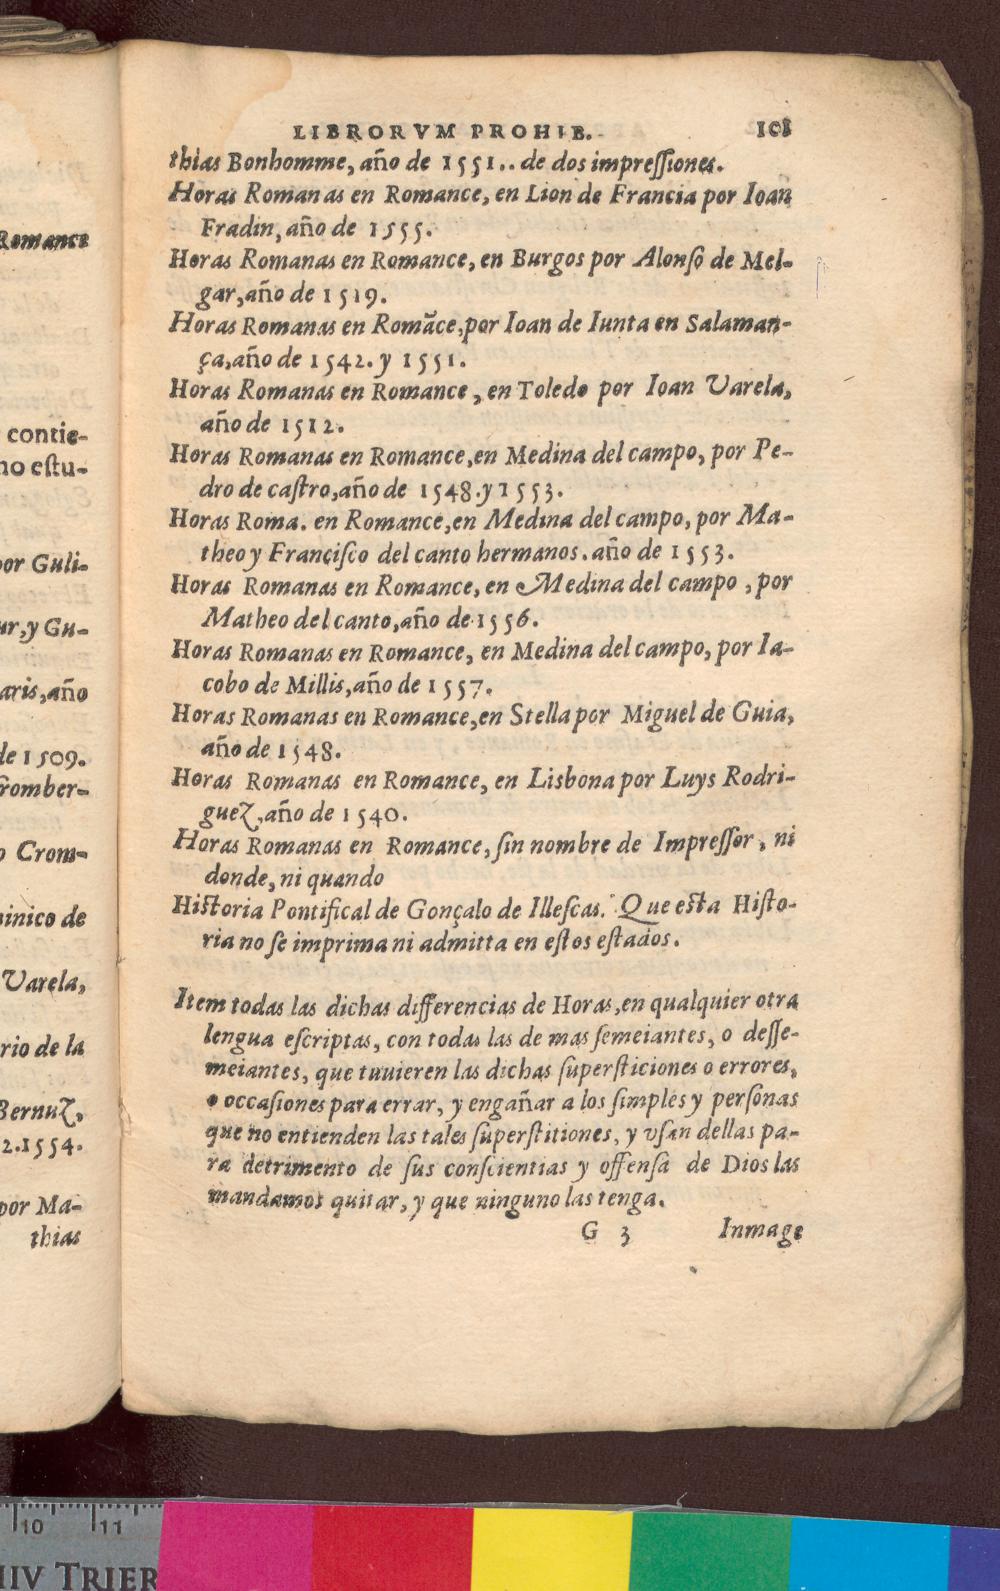 Romance
contie-
no eſtu-
por Guli-
ur,y Gu-
aris,año
de 1509.
romber-
o Crom-
inico de
Varela,
rio de la
BernuZ,
2.1554.
por Ma-
thias
LIBRORVM PROHIB. 101
thias Bonhomme, año de 1551.. de dos impreſſiones.
Horas Romanas en Romance, en Lion de Francia por Ioan
Fradin, año de 1555.
Horas Romanas en Romance, en Burgos por Alonſo de Mel-
gar,año de 1519.
Horas Romanas en Romãce,por Ioan de Iunta en Salaman-
ça,año de 1542. y 1551.
Horas Romanas en Romance, en Toledo por Ioan Varela,
año de 1512.
Horas Romanas en Romance,en Medina del campo, por Pe-
dro de caſtro,año de 1548.y 1553.
Horas Roma. en Romance,en Medina del campo, por Ma-
theo y Franciſco del canto hermanos. año de 1553.
Horas Romanas en Romance, en Medina del campo, por
Matheo del canto,año de 1556.
Horas Romanas en Romance, en Medina del campo, por Ia-
cobo de Millis,año de 1557.
Horas Romanas en Romance,en Stella por Miguel de Guia,
año de 1548.
Horas Romanas en Romance, en Lisbona por Luys Rodri-
gueZ,año de 1540.
Horas Romanas en Romance, ſin nombre de Impreſſor, ni
donde, ni quando
Hiſtoria Pontifical de Gonçalo de Illeſcas. Que eſta Hiſto-
ria no ſe imprima ni admitta en eſtos eſtados.
Item todas las dichas differencias de Horas,en qualquier otra
lengua eſcriptas, con todas las de mas ſemeiantes, o deſſe-
meiantes, que tuuieren las dichas ſuperſticiones o errores,
o occaſiones para errar, y engañar a los ſimples y perſonas
que no entienden las tales ſuperſtitiones, y vſan dellas pa-
ra detrimento de ſus conſcientias y offenſa de Dios las
mandamos quitar, y que ninguno las tenga.
G 3 Inmage
10 11
HIV TRIER